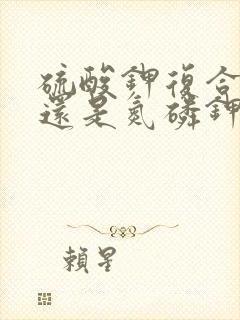 硫酸鉀復合
還是氮磷鉀
賴星